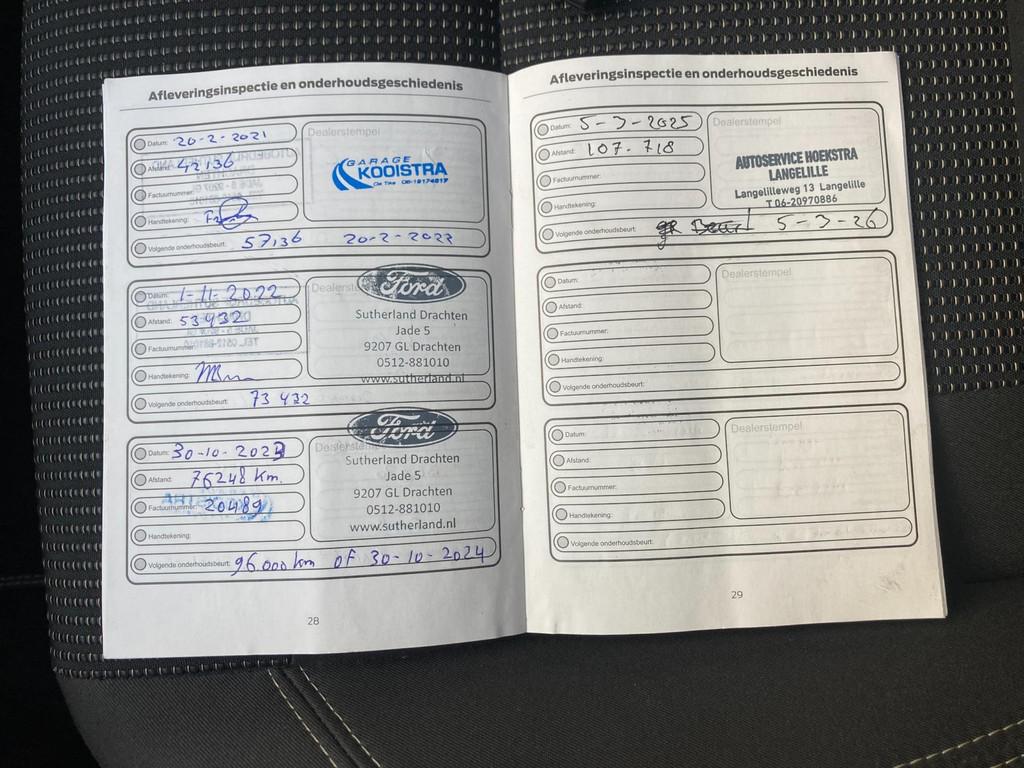 Afleveringsinspectie en onderhoudsgeschiedenis
Datum: 20-2-2021
Afstand: 42136
Factuurnummer:
Handtekening:
Volgende onderhoudsbeurt: 57136 20-2-2022
Dealerstempel
GARAGE
KOOISTRA
Datum: 1-11-2022
Afstand: 53432
Factuurnummer:
Handtekening:
Volgende onderhoudsbeurt: 73432
Ford
Sutherland Drachten
Jade 5
9207 GL Drachten
0512-881010
www.sutherland.nl
Datum: 30-10-2023
Afstand: 76248 km.
Factuurnummer: 20489
Handtekening:
Volgende onderhoudsbeurt: 96.000 km of 30-10-2024
Ford
Sutherland Drachten
Jade 5
9207 GL Drachten
0512-881010
www.sutherland.nl
28
Afleveringsinspectie en onderhoudsgeschiedenis
Datum: 5-3-2025
Afstand: 107.718
Factuurnummer:
Handtekening:
Volgende onderhoudsbeurt: gr Beurt 5-3-26
Dealerstempel
AUTOSERVICE HOEKSTRA
LANGELILLE
Langelilleweg 13 Langelille
T 06-20970886
Datum:
Afstand:
Factuurnummer:
Handtekening:
Volgende onderhoudsbeurt:
Dealerstempel
Datum:
Afstand:
Factuurnummer:
Handtekening:
Volgende onderhoudsbeurt:
Dealerstempel
29